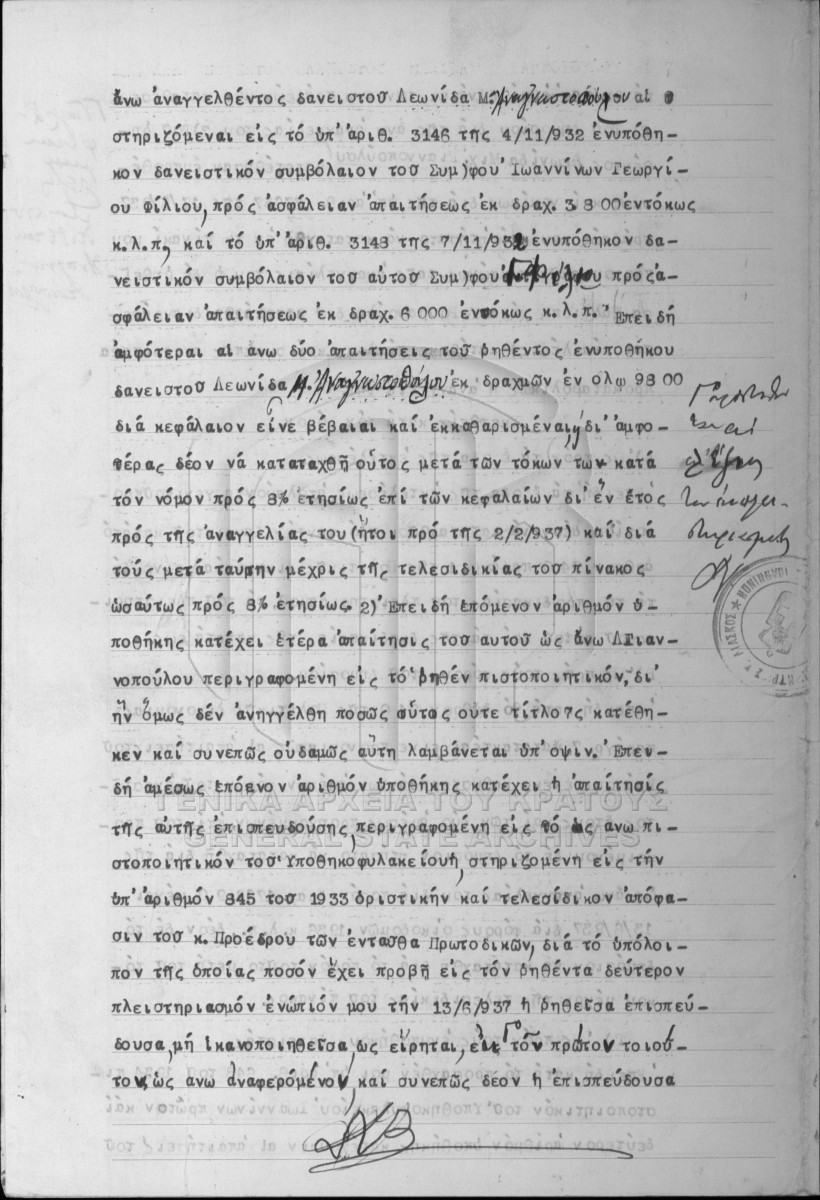 ἄνω ἀναγγελθέντος δανειστοῦ Λεωνίδα Μ. Ἀναγνωστοπούλου αἱ
στηριζόμεναι εἰς τό ὑπ' ἀριθ. 3146 τῆς 4/11/932 ἐνυπόθη-
κον δανειστικόν συμβόλαιον τοῦ Συμ)φου Ἰωαννίνων Γεωργί-
ου Φίλιου, πρός ἀσφάλειαν ἀπαιτήσεως ἐκ δραχ. 3.800 ἐντόκως
κ.λ.π., καί τό ὑπ' ἀριθ. 3148 τῆς 7/11/932 ἐνυπόθηκον δα-
νειστικόν συμβόλαιον τοῦ αὐτοῦ Συμ)φου Γ. Φίλιου πρός ἀ-
σφάλειαν ἀπαιτήσεως ἐκ δραχ. 6000 ἐντόκως κ.λ.π. Ἐπειδή
ἀμφότεραι αἱ ἄνω δύο ἀπαιτήσεις τοῦ ῥηθέντος ἐνυποθήκου
δανειστοῦ Λεωνίδα Μ. Ἀναγνωστοπούλου ἐκ δραχμῶν ἐν ολῳ 9800
διά κεφάλαιον εἶνε βέβαιαι καί ἐκκαθαρισμέναι, δι' ἀμφο-
τέρας δέον νά καταταχθῇ οὗτος μετά τῶν τόκων των κατά
τόν νόμον πρός 8% ἐτησίως ἐπί τῶν κεφαλαίων δι' ἕν ἔτος
πρός τῆς ἀναγγελίας του (ἤτοι πρό τῆς 2/2/937) καί διά
τούς μετά ταύτην μέχρις τῆς τελεσιδικίας τοῦ πίνακος
ὡσαύτως πρός 8% ἐτησίως. 2) Ἐπειδή ἑπόμενον ἀριθμόν ὑ-
ποθήκης κατέχει ἑτέρα ἀπαίτησις τοῦ αυτοῦ ὡς ἄνω Λ Γιαν-
νοπούλου περιγραφομένη εἰς τό ῥηθέν πιστοποιητικόν, δι'
ἥν ὅμως δέν ἀνηγγέλθη ποσῶς οὗτος ουτε τίτλο7ς κατέθη-
κεν καί συνεπῶς οὐδαμῶς αὕτη λαμβάνεται ὑπ' οψιν. Ἐπει-
δή ἀμέσως ἑπόενον ἀριθμόν ὑποθήκης κατέχει ἡ ἀπαίτησίς
ΓΕΝΙΚΑ ΑΡΧΕΙΑ ΤΟΥ ΚΡΑΤΟΥΣ
τῆς αὐτῆς ἐπισπευδούσης, περιγραφομένη εἰς τό ὡς ανω πι-
GENERAL STATE ARCHIVES
στοποιητικόν τοῦ Ὑποθηκοφυλακείου, στηριζομένη εἰς τήν
ὑπ' ἀριθμόν 845 τοῦ 1933 ὁριστικήν καί τελεσίδικον ἀπόφα-
σιν τοῦ κ. Προέδρου τῶν ἐνταῦθα Πρωτοδικῶν, διά τό ὑπόλοι-
πον τῆς ὁποίας ποσόν ἔχει προβῇ εἰς τόν ῥηθέντα δεύτερον
πλειστηριασμόν ἐνώπιόν μου τήν 13/6/937 ἡ ῥηθεῖσα ἐπισπεύ-
δουσα, μή ἱκανοποιηθεῖσα, ὡς εἴρηται, τόν πρῶτον τοιοῦ-
τον, ὡς ανω ἀναφερόμενον, καί συνεπῶς δεον ἡ ἐπισπεύδουσα